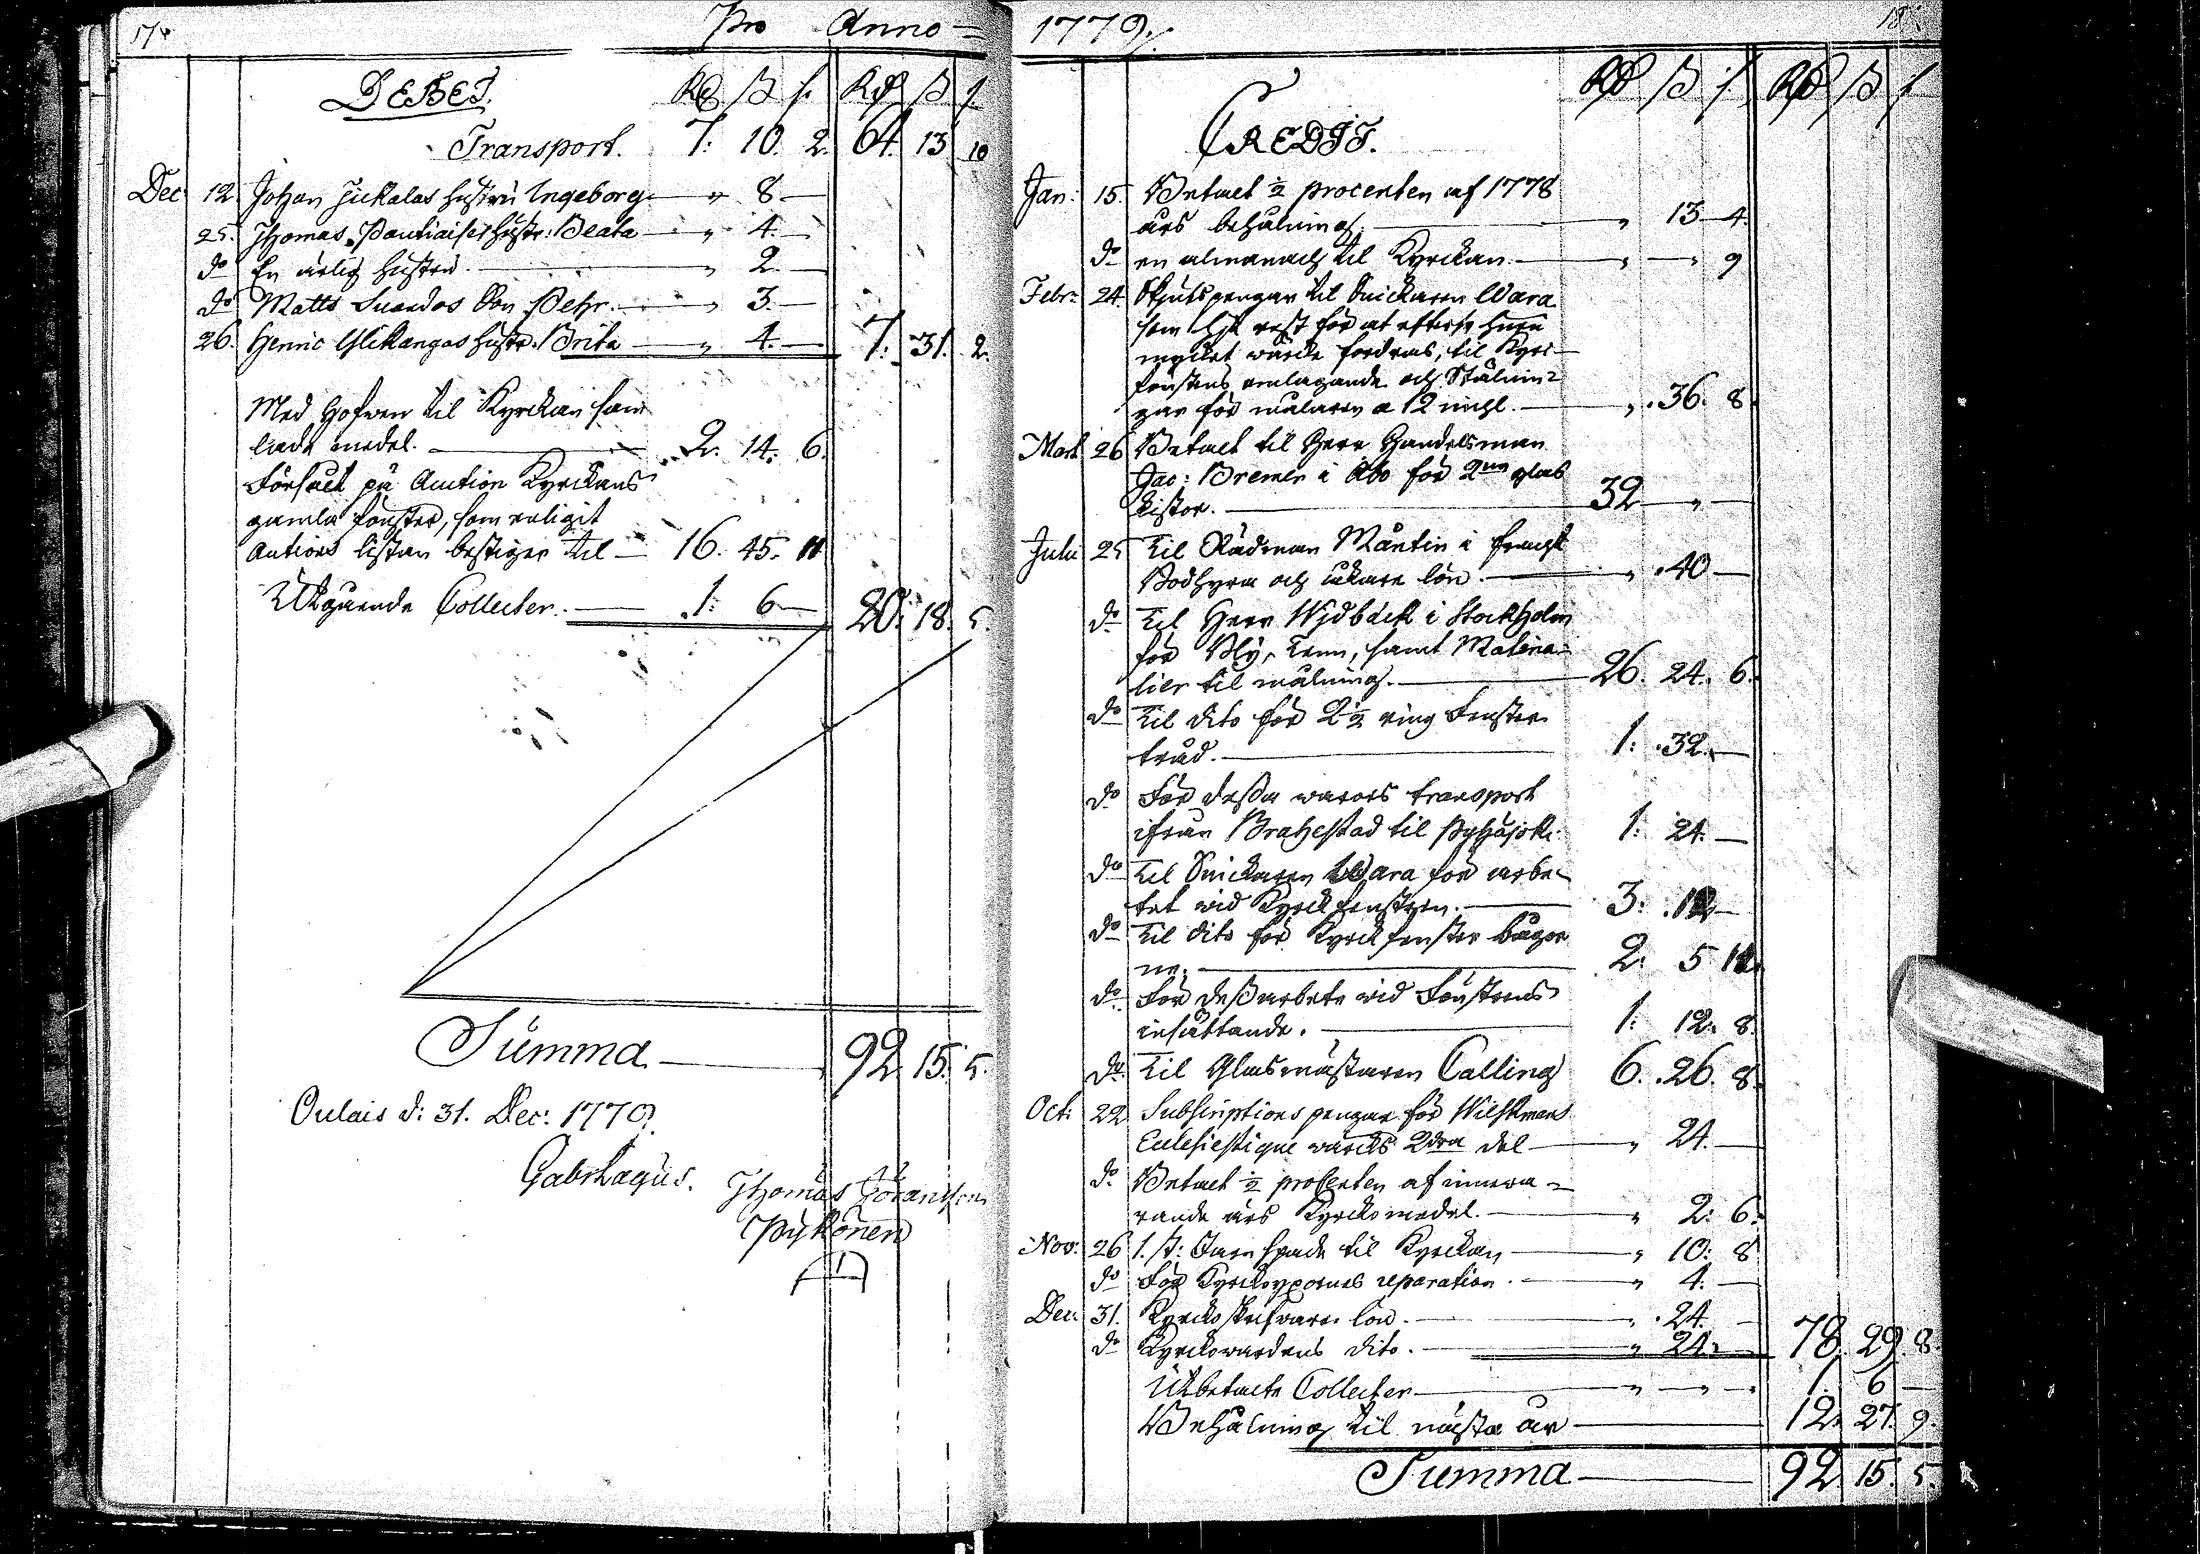 17.
Pro Anno
DEBET. Rd ß f. Rd ß f.
Transport. 7: 10. 2. 64. 13 10
Dec 12. Johan Juckalas hustru Ingeborg — " 8 —
25. Thomas Hustr: Beata — " 4. —
do En ärlig hustru. — " 2. —
do Matts Suandos Son Pehr. — " 3. —
26. Henric Ylikangas hustr. Brita — " 4. — 7: 31. 2.
Med Hofwen til Kyrckan sam
lade medel. — 2. 14. 6.
Försålt på Auction Kyrckans
gamla fönster, som enligit
Autions listan bestiger til — 16. 45. 11
Utgående Collecter. — 1: 6 — 20. 18. 5.
Summa — 92. 15. 5.
Oulais d: 31. Dec: 1779.
Gabr Lagus. Thomas Göransson
Pyykönen
1779. 18.
Rd ß f Rd ß f
CREDIT.
Jan: 15. Betalt ½ procenten af 1778
års behålning. — " 13 4.
do en almanach til Kyrckan. — " — " 9
Febr: 24. Skjutspengar til Snickaren Wara
som hit rest för at efterse huru
mycket wircke fordras, til Kyrc-
fönstens omlagande och Stålnin-
gar för målaren a 12 mihl. — ". 36. 8.
Mart 26 Betalt til Herr Handelsman
Jac: Bremer i Åbo för 2ne glas
kistor. — 32 — " —
Julii 25 til Rådman Mårtin i frackt
Bodhyra och åkare lön. — ". 40 —
do til Herr Widbäck i Stockholm
för Bly, Tenn, samt Materia-
lier til målning. — 26. 24. 6.
do Til dito för 2½ ring Fenster
tråd. — 1: 32. —
do För dessa warors transport
ifrån Brahestad til Pyhäjoki. 1: 24. —
do til Snickaren Wara för arbe-
tet wid Kyrckfenstren. — 3: 12 —
do til dito för Kyrckfenster bågar
ne. — 2: 5 11.
do För dess arbete wid Fönstrens
insättande. — 1: 12: 8.
do Til Glasmästaren Calling 6. 26. 8.
Oct: 22 Subscriptions pengar för Wilskmans
Eclesiestique wärcks 2dra del — " 24. —
do Betalt ½ procenten af innewa-
rande års Kyrckomedel. — " 2: 6.
Nov: 26 1. st: Jarn spade til Kyrckan — " 10: 8
do För reparation. — " 4. —
Dec: 31. Kyrckoskrifware lön. — ". 24. —
do Kyrckowardens dito. — " 24. — 78. 29. 8.
Utbetalte Collecter — " — " — 1. 6 —
Behålning til nästa år — 12. 27. 9.
Summa — 92 15. 5.